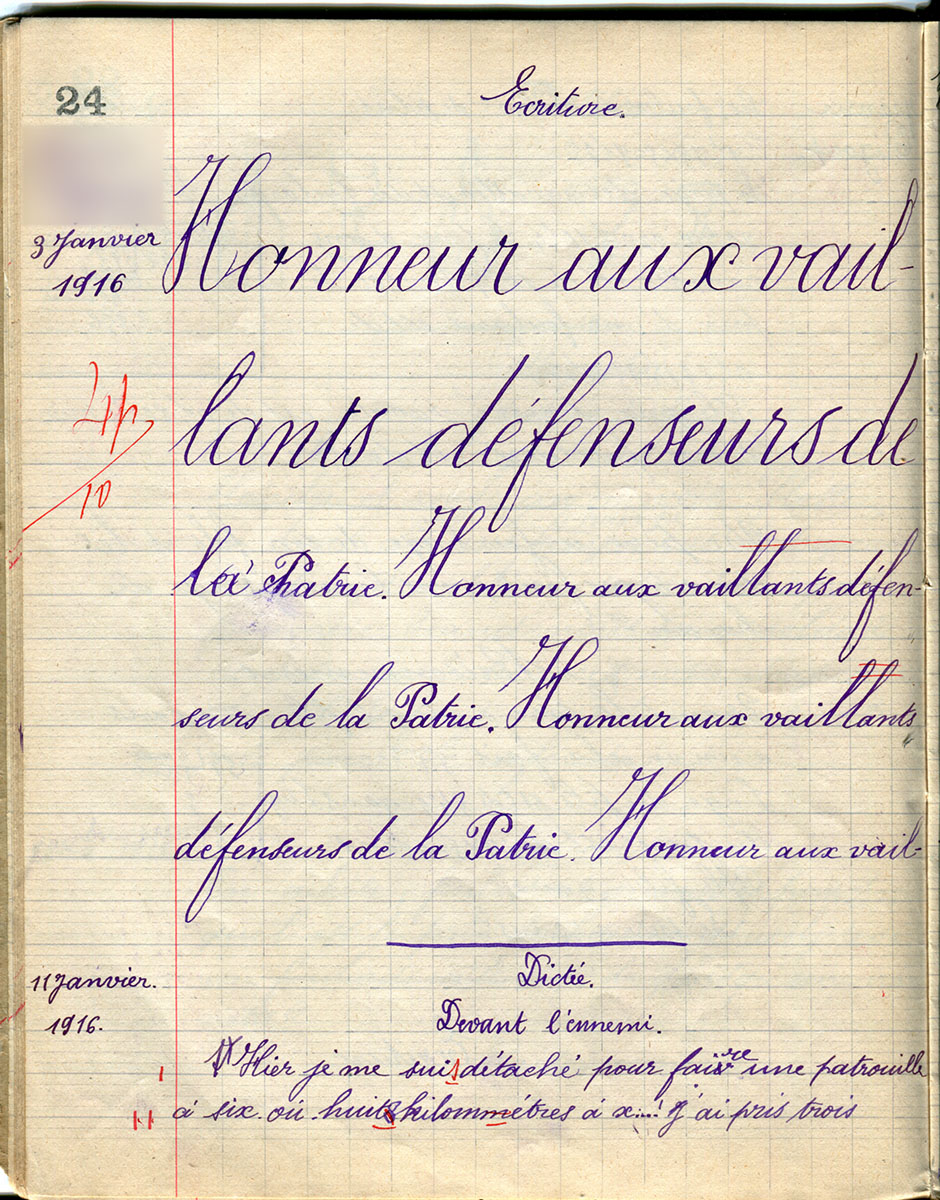 24
Ecriture.
3 Janvier
1916
Honneur aux vail-
4
10
lants défenseurs de
la Patrie. Honneur aux vaillants défen-
seurs de la Patrie. Honneur aux vaillants
défenseurs de la Patrie. Honneur aux vail-
11 Janvier.
1916.
Dictée.
Devant l'ennemi.
Hier je me suis détaché pour faire une patrouille
à six où huit kilommétres à x.... J'ai pris trois